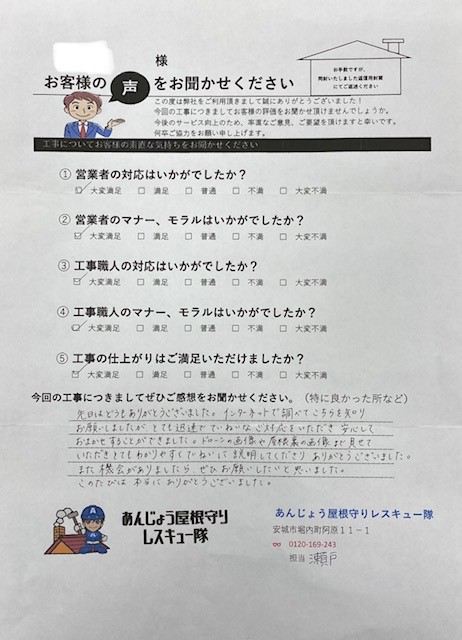 様
お手数ですが、
同封いたしました返信用封筒
にてご返送ください
お客様の声をお聞かせください
この度は弊社をご利用頂きまして誠にありがとうございました！
今回の工事につきましてお客様の評価をお聞かせ頂けませんでしょうか。
今後のサービス向上のため、率直なご意見、ご要望を頂けますと幸いです。
何卒ご協力をお願い申し上げます。
工事についてお客様の素直な気持ちをお聞かせください
① 営業者の対応はいかがでしたか？
☑ 大変満足 □ 満足 □ 普通 □ 不満 □ 大変不満
② 営業者のマナー、モラルはいかがでしたか？
☑ 大変満足 □ 満足 □ 普通 □ 不満 □ 大変不満
③ 工事職人の対応はいかがでしたか？
☑ 大変満足 □ 満足 □ 普通 □ 不満 □ 大変不満
④ 工事職人のマナー、モラルはいかがでしたか？
☑ 大変満足 □ 満足 □ 普通 □ 不満 □ 大変不満
⑤ 工事の仕上がりはご満足いただけましたか？
☑ 大変満足 □ 満足 □ 普通 □ 不満 □ 大変不満
今回の工事につきましてぜひご感想をお聞かせください。（特に良かった所など）
先日はどうもありがとうございました。インターネットで調べてこちらを知り
お願いしましたが、とても迅速でていねいなご対応をいただき 安心して
おまかせすることができました。ドローンの画像や屋根裏の画像まで見せて
いただきとてもわかりやすくていねいに説明してくださり ありがとうございました。
また機会がありましたら、ぜひお願いしたいと思いました。
このたびは 本当に ありがとうございました。
あんじょう屋根守り
レスキュー隊
あんじょう屋根守りレスキュー隊
安城市堀内町阿原１１－１
0120-169-243
担当 瀬戸